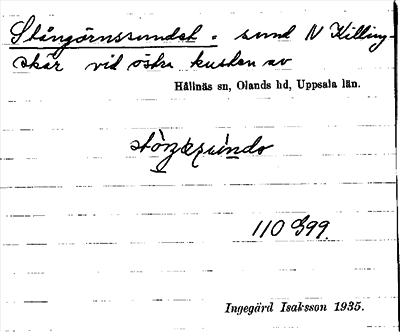 Stångörnssundet. sund N Killing-
skär vid östra kusten av
Hållnäs sn, Olands hd, Uppsala län.
110 G99.
Ingegärd Isaksson 1935.